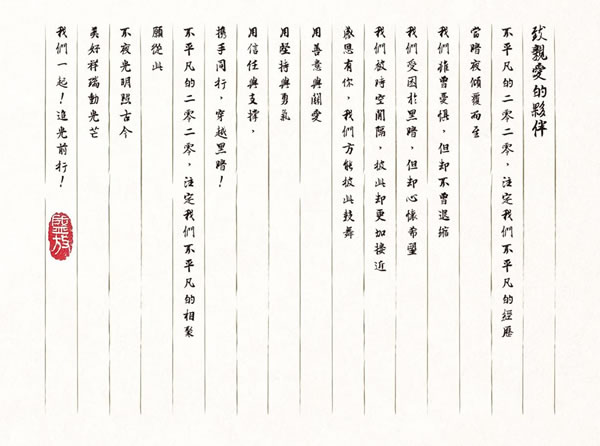 致親愛的夥伴
不平凡的二零二零，注定我們不平凡的經歷
當暗夜傾覆而至
我們雖曾憂惧，但却不曾退縮
我們受困於黑暗，但却心懷希望
我們被時空間隔，彼此却更加接近
感恩有你，我們方能彼此鼓舞
用善意與關愛
用堅持與勇氣
用信任與支撐，
攜手同行，穿越黑暗！
不平凡的二零二零，注定我們不平凡的相聚
願從此
不夜光明照古今
美好祥瑞動光芒
我們一起！追光前行！
盛放